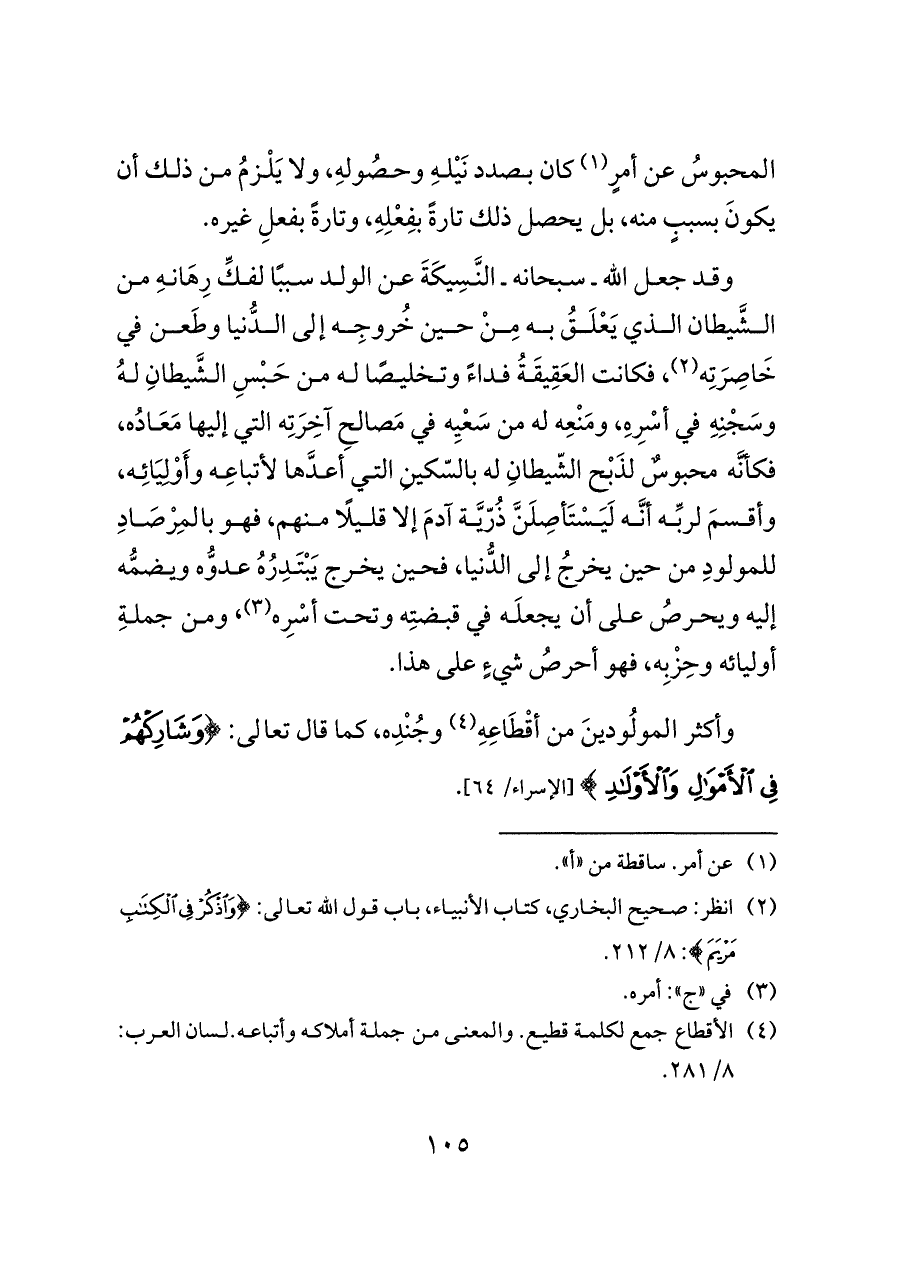 المحبوسُ عن أمرٍ(١) كان بصدد نَيْلهِ وحصُولهِ، ولا يَلْزمُ من ذلك أن
يكونَ بسببٍ منه، بل يحصل ذلك تارةً بفِعْلِهِ، وتارةً بفعلِ غيره.
وقد جعل الله ـ سبحانه ـ النَّسِيكَةَ عن الولد سببًا لفكِّ رِهَانهِ من
الشَّيطان الذي يَعْلَقُ به مِنْ حين خُروجِه إلى الدُّنيا وطَعن في
خَاصِرَتِه(٢)، فكانت العَقِيقَةُ فداءً وتخليصًا له من حَبْسِ الشَّيطانِ لهُ
وسَجْنِهِ في أسْرِهِ، ومَنْعِه له من سَعْيِه في مَصالحِ آخِرَتِه التي إليها مَعَادُه،
فكأنَّه محبوسٌ لذَبْح الشّيطانِ له بالسّكينِ التي أعدَّها لأتباعِه وأَوْلِيَائِه،
وأقسمَ لربِّه أنَّه لَيَسْتَأصِلَنَّ ذُرّيَّة آدمَ إلا قليلًا منهم، فهو بالمِرْصَادِ
للمولودِ من حين يخرجُ إلى الدُّنيا، فحين يخرج يَبْتَدِرُهُ عدوُّه ويضمُّه
إليه ويحرصُ على أن يجعلَه في قبضتِه وتحت أسْرِه(٣)، ومن جملةِ
أوليائه وحِزْبِه، فهو أحرصُ شيءٍ على هذا.
وأكثر المولُودينَ من أقْطَاعِهِ(٤) وجُنْدِه، كما قال تعالى: ﴿وَشَارِكْهُمْ
فِي ٱلْأَمْوَٰلِ وَٱلْأَوْلَٰدِ﴾ [الإسراء/ ٦٤].
(١) عن أمر. ساقطة من «أ».
(٢) انظر: صحيح البخاري، كتاب الأنبياء، باب قول الله تعالى: ﴿وَٱذْكُرْ فِي ٱلْكِتَٰبِ
مَرْيَمَ﴾: ٨/ ٢١٢.
(٣) في «ج»: أمره.
(٤) الأقطاع جمع لكلمة قطيع. والمعنى من جملة أملاكه وأتباعه.لسان العرب:
٨/ ٢٨١.
١٠٥